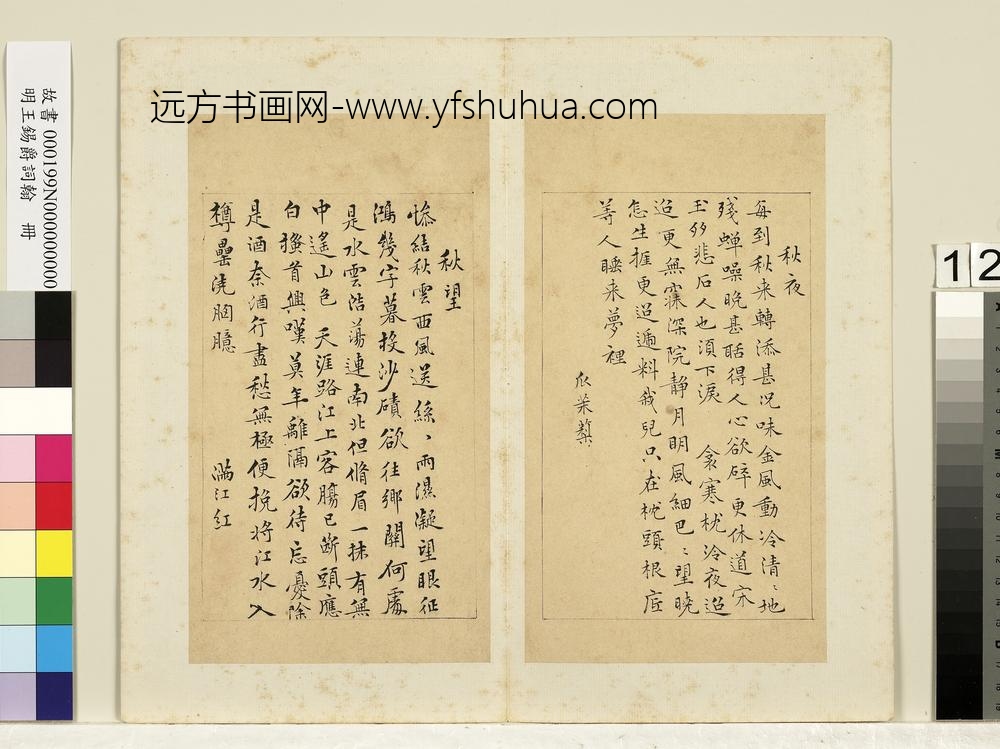 远方书画网-www.yfshuhua.com
故書 000199N000000000
明王錫爵詞翰 冊
12
秋夜
每到秋来轉添甚况味金風動冷清〻地
殘蟬噪晚甚聒得人心欲碎更休道宋
玉多悲石人也須下淚 衾寒枕冷夜迢
迢更無寐深院靜月明風細巴〻望曉
怎生捱更迢遞料我兒只在枕頭根底
等人睡来夢裡
爪茉莉
秋望
慘結秋雲西風送絲〻雨濕凝望眼征
鴻幾字暮投沙磧欲往鄉關何處
是水雲浩蕩連南北但脩眉一抹有無
中遙山色 天涯路江上客腸已断頭應
白搔首興嘆莫年離隔欲待忘憂除
是酒奈酒行盡愁無極便挽将江水入
樽罍澆胸臆
滿江紅